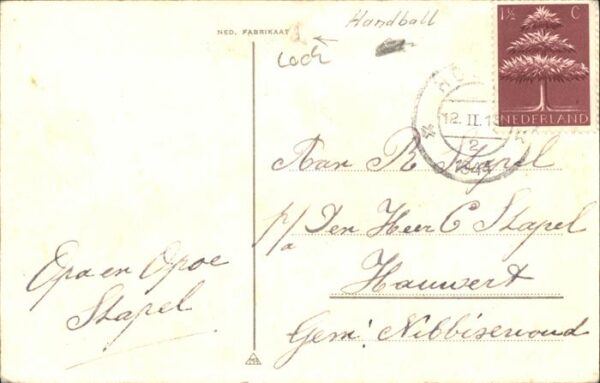 NED. FABRIKAAT
Handball
1½ C
NEDERLAND
12. II. 13
2
1944
Aan R Stapel
p/a Den Heer C Stapel
Hauwert
Gem. Nibbixwoud
Opa en Opoe
Stapel